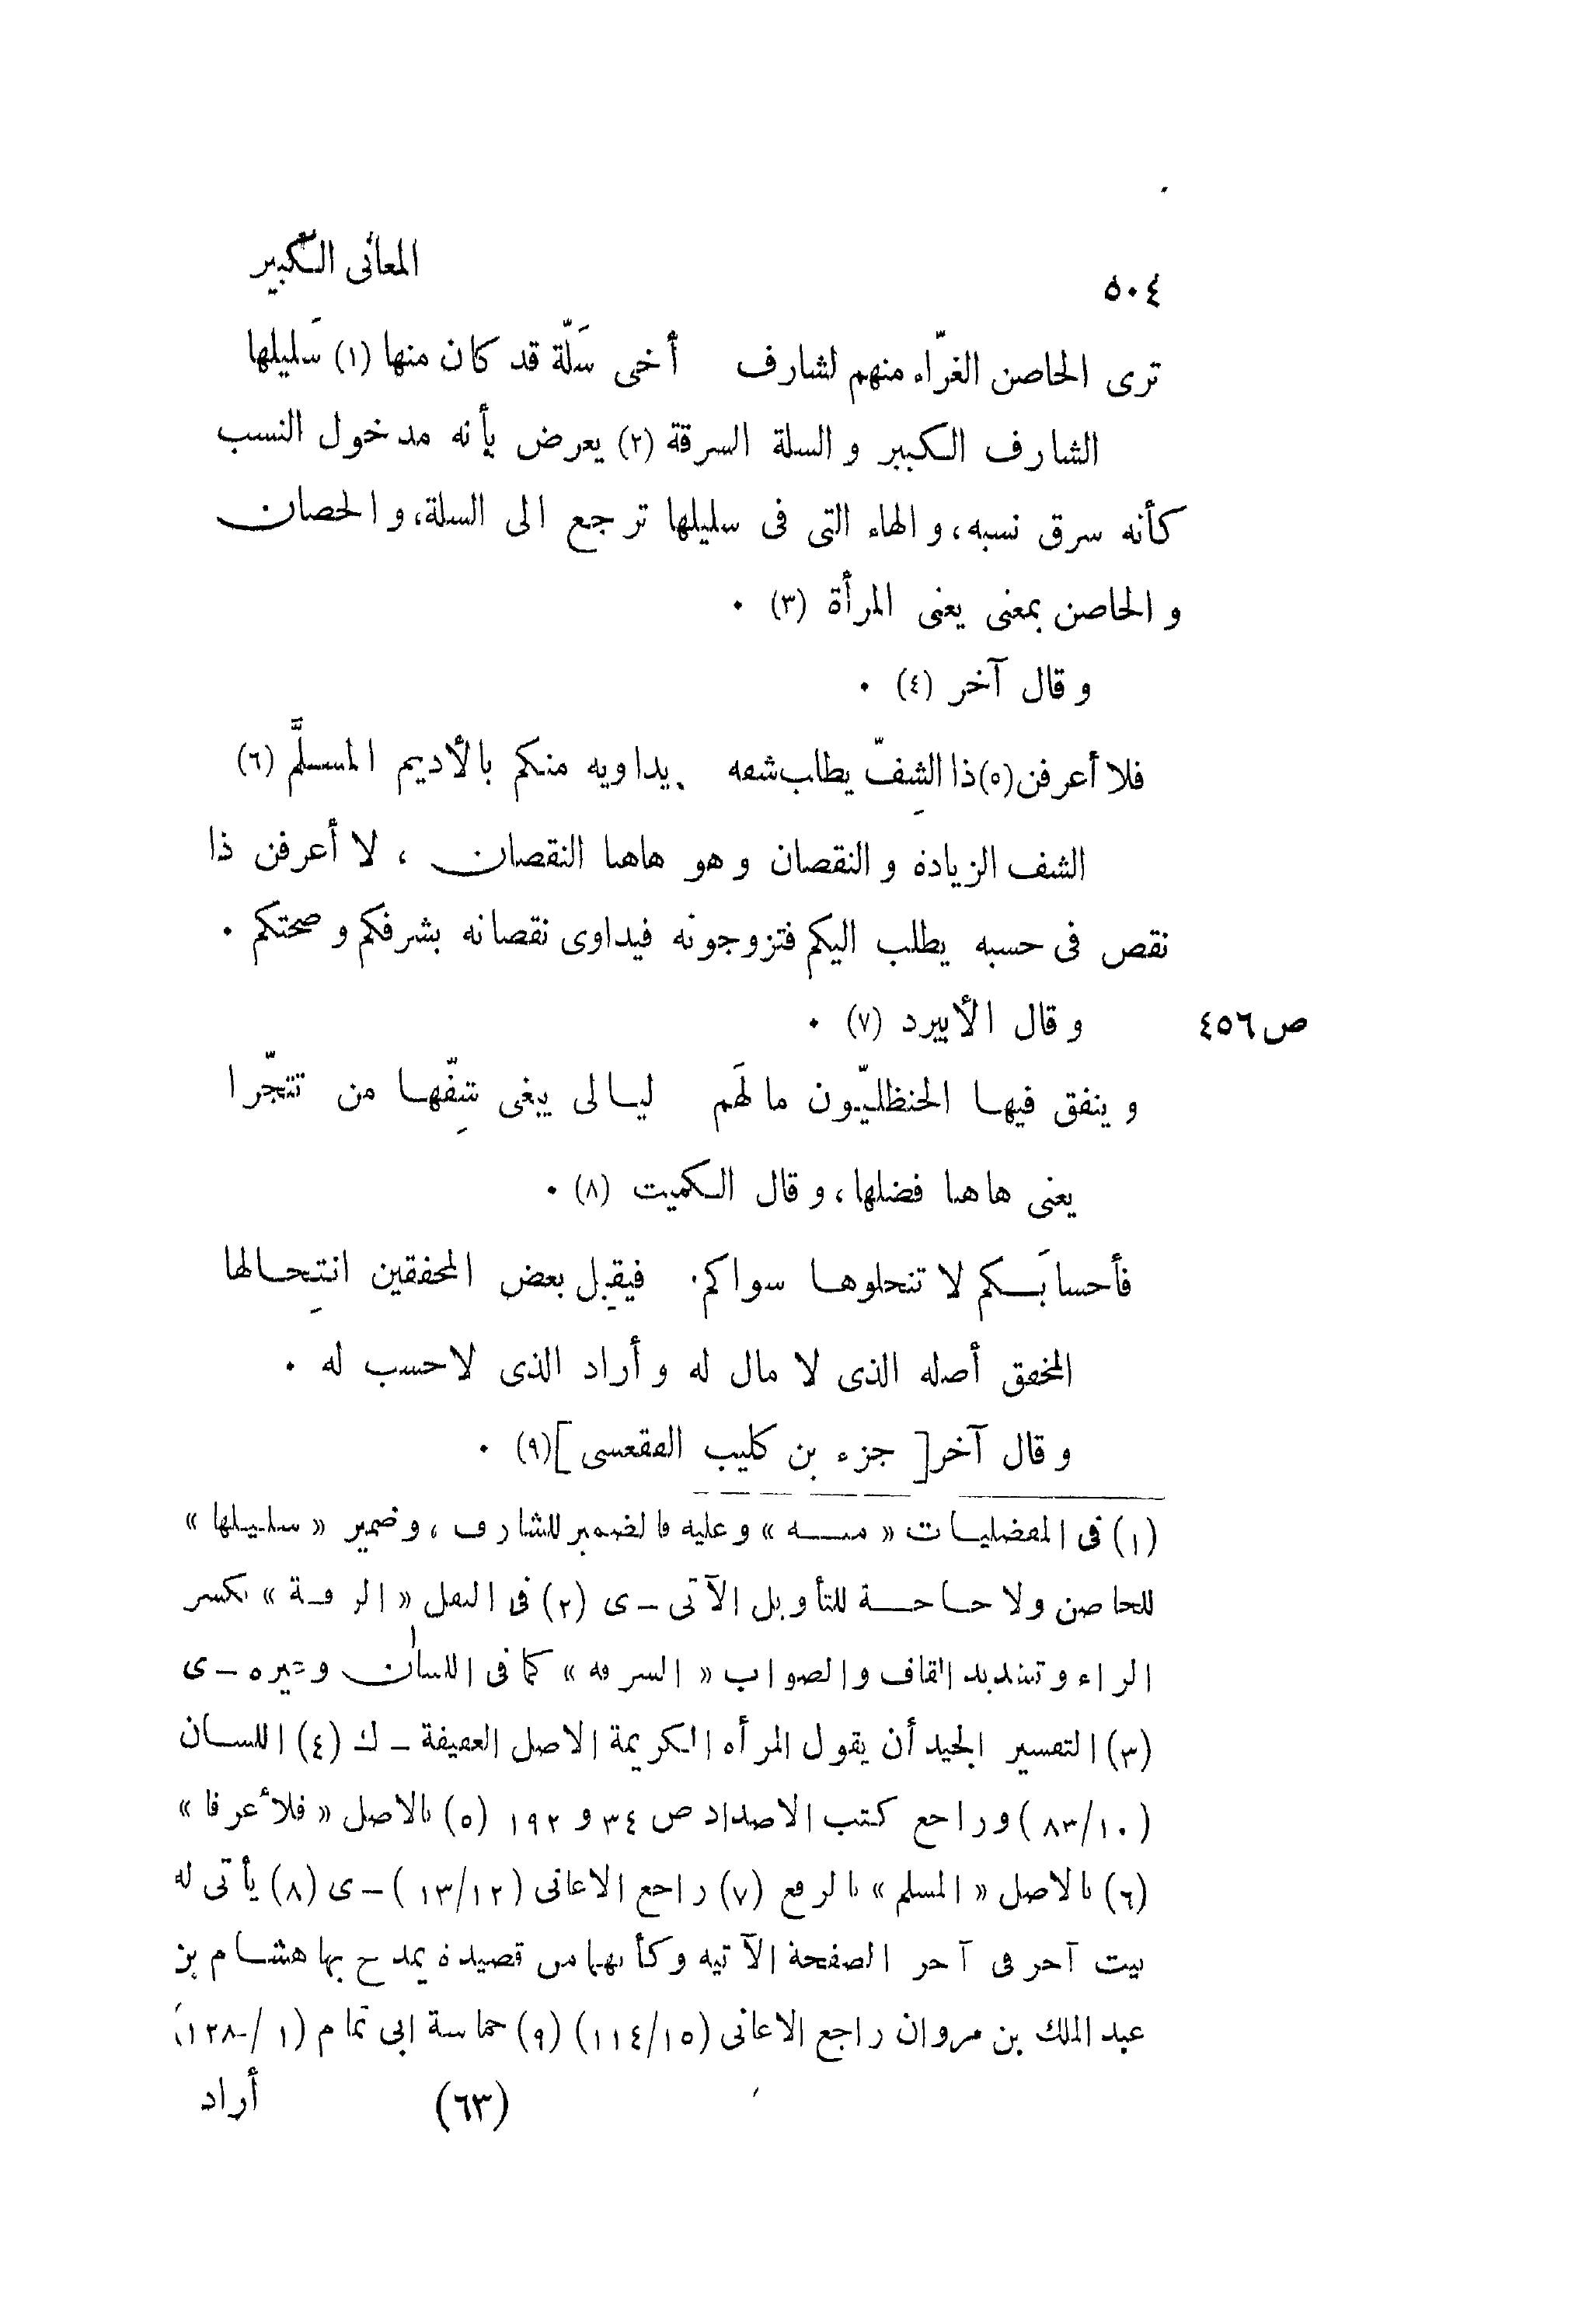 ٥٠٤ المعانى الكبير
ترى الحاصن الغرّاء منهم لشارف أخى سَلّة قد كان منها (١) سَليلها
الشارف الكبير و السلة السرقة (٢) يعرض بأنه مدخول النسب
كأنه سرق نسبه، و الهاء التى فى سليلها ترجع الى السلة، و الحصان
و الحاصن بمعنى يعنى المرأة (٣) ٠
و قال آخر (٤) ٠
فلا أعرفن (٥) ذا الشِفّ يطلب شفه يداويه منكم بالأديم المسلَّم (٦)
الشف الزيادة و النقصان و هو هاهنا النقصان ، لا أعرفن ذا
نقص فى حسبه يطلب اليكم فتزوجونه فيداوى نقصانه بشرفكم و صحتكم ٠
و قال الأبيرد (٧) ٠ ص ٤٥٦
و ينفق فيها الحنظليّون مالَهم ليالى يبغى شِفّها من تتجّرا
يعنى هاهنا فضلها، و قال الكميت (٨) ٠
فأحسابَكم لا تنحلوها سواكم فيقبِل بعض المخفقين انتِحالها
المخفق أصله الذى لا مال له و أراد الذى لا حسب له ٠
و قال آخر [ جزء بن كليب الفقعسى ] (٩) ٠
(١) فى المفضليات « منه » وعليه فالضمير للشارف ، وضمير « سليلها »
للحاصن ولا حاجة للتأويل الآتى - ى (٢) فى النقل « الرقة » بكسر
الراء وتشديد القاف والصواب « السرقة » كما فى اللسان وغيره - ى
(٣) التفسير الجيد أن يقول المرأة الكريمة الاصل العفيفة - ك (٤) اللسان
(١٠/٨٣) وراجع كتب الاضداد ص ٣٤ و ١٩٢ (٥) بالاصل « فلا أعرفا »
(٦) بالاصل « المسلم » بالرفع (٧) راجع الاغانى (١٢/١٣) - ى (٨) يأتى له
بيت آخر فى آخر الصفحة الآتية وكأنهما من قصيدة يمدح بها هشام بن
عبد الملك بن مروان راجع الاغانى (١٥/١١٤) (٩) حماسة ابى تمام (١/١٢٨)
(٦٣) أراد